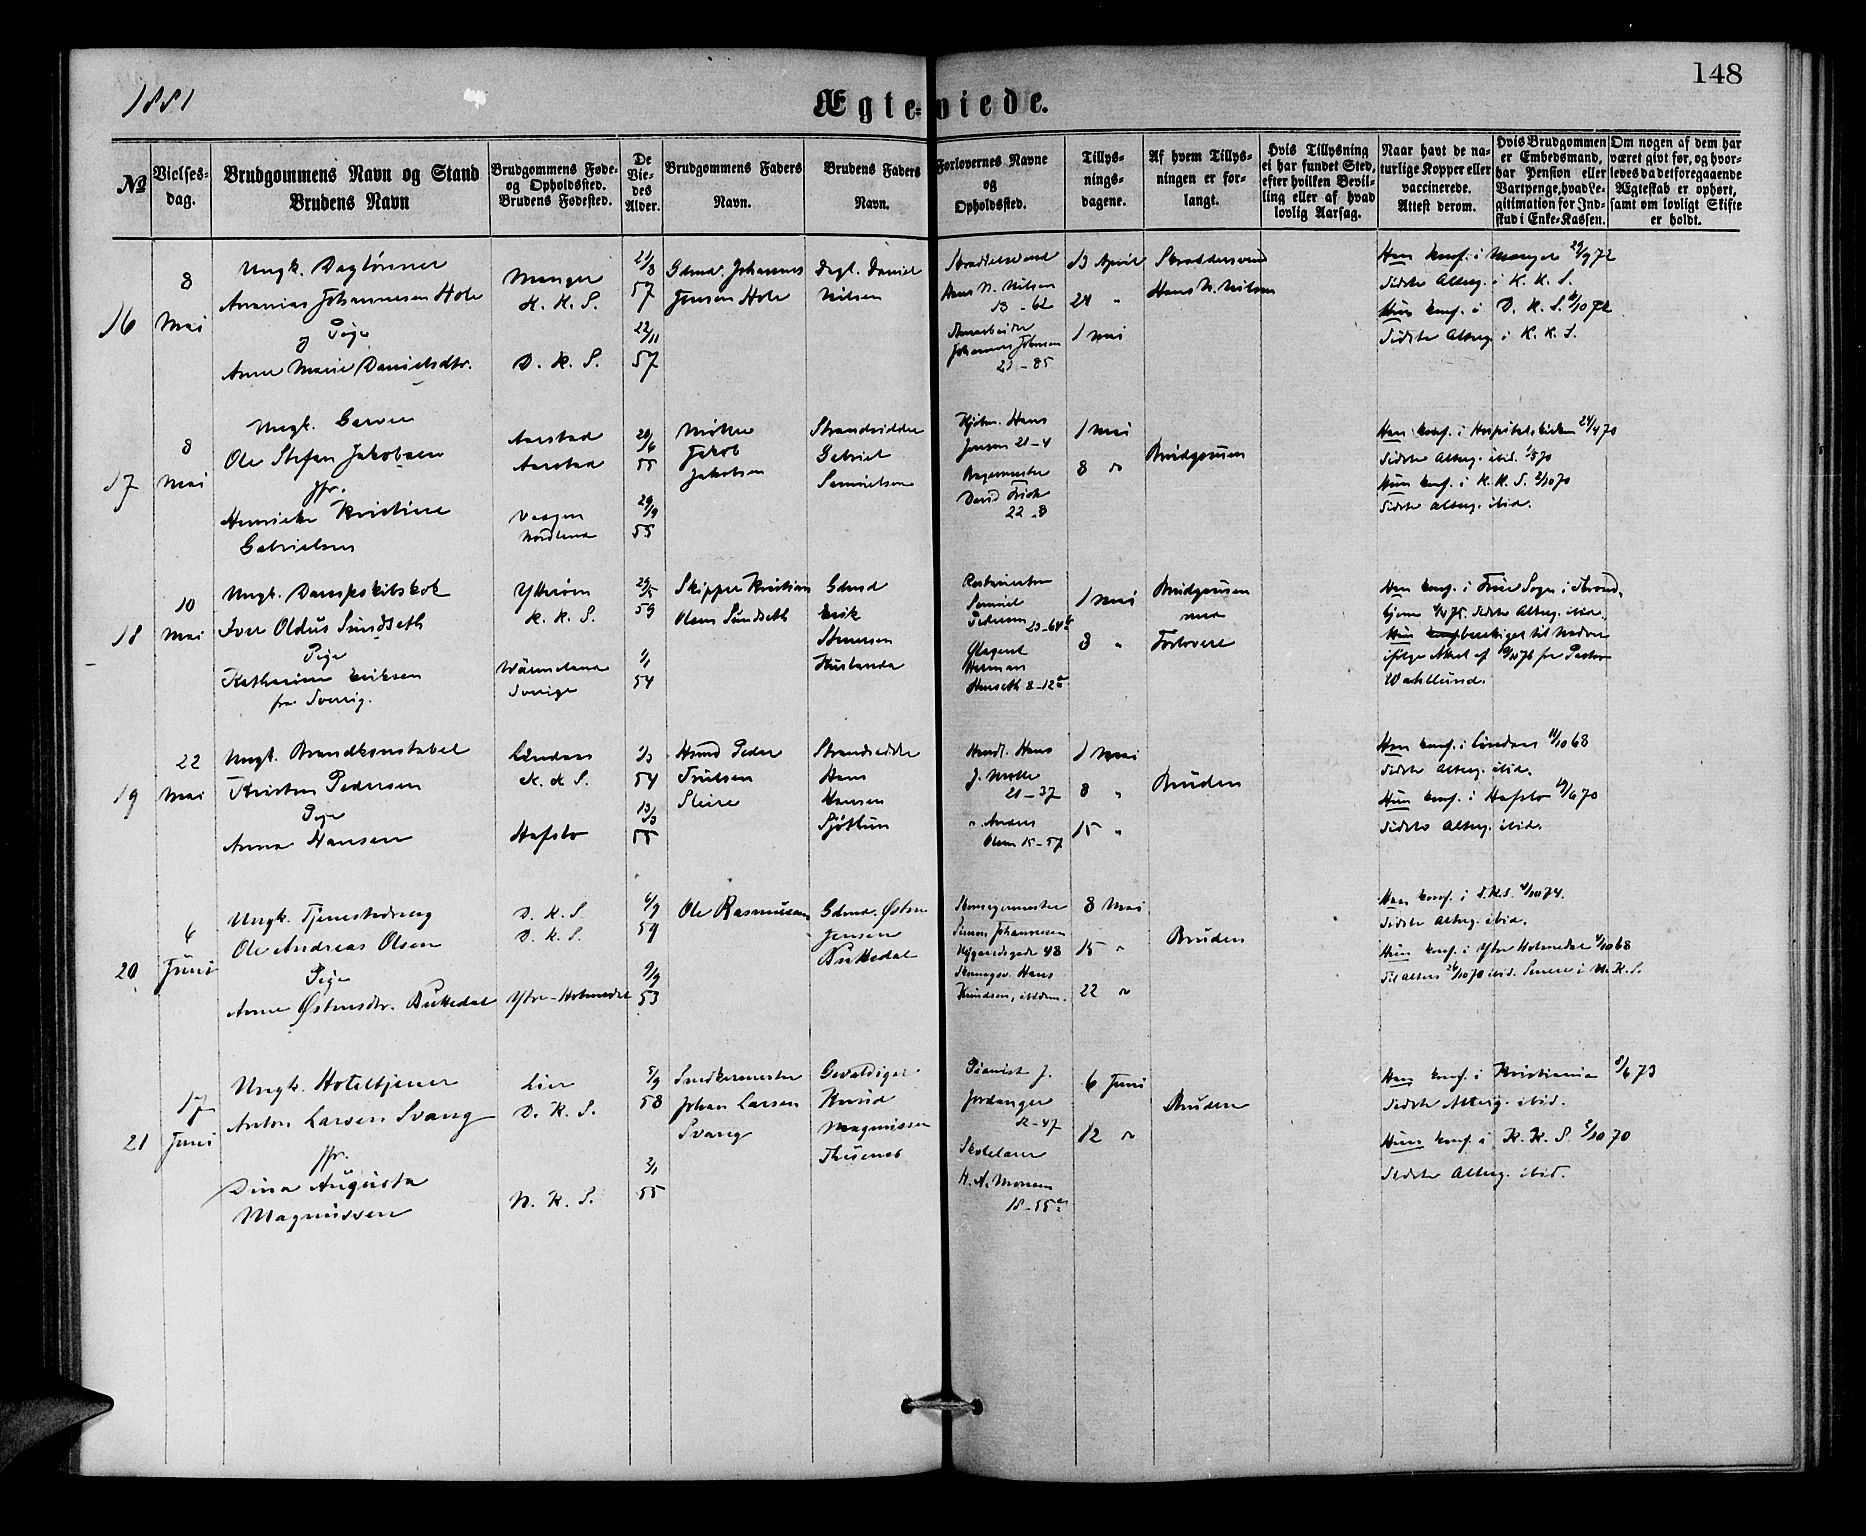 1881
148
Ægteviede.
№
Vielses-
dag.
Brudgommens Navn og Stand
Brudens Navn
Brudgommens Føde-
og Opholdssted.
Brudens Fødested.
De
Vie-
des
Alder.
Brudgommens Faders
Navn.
Brudens Faders
Navn.
Forlovernes Navne
og
Opholdssted.
Tillys-
nings-
dagene.
Af hvem Tillys-
ningen er for-
langt.
Hvis Tillysning
ei har fundet Sted,
efter hvilken Bevil-
ling eller af hvad
lovlig Aarsag.
Naar havt de na-
turlige Kopper eller
vaccinerede.
Attest derom.
Hvis Brudgommen
er Embedsmand,
har Pension eller
Vartpenge, hvad Le-
gitimation for Ind-
skud i Enke-Kassen.
Om nogen af dem har
været givt før, og hvor-
ledes da det foregaaende
Ægteskab er ophørt,
samt om lovligt Skifte
er holdt.
16
8
Mai
Ungk. Daglønner
Ananias Johannesen Hole
og Pige
Anne Marie Danielsdtr.
Manger
K. K. S.
D. K. S.
21/8
57
22/11
57
Gdmd. Johannes
Jensen Hole
Dagl. Daniel
Nilsen
Hans N. Nilsen
13 - 62
Johannes Johnsen
21 - 85
13 April
24 "
1 Mai
Hans N. Nilsen
Han konf. i Manger 29/9 72
Sidste Alterg. i K. K. S.
Hun konf. i D. K. S. 6/10 72
Sidste Alterg. i K. K. S.
17
8
Mai
Ungk. Garver
Ole Stefan Jakobsen
Jfr.
Henrikke Kristine
Gabrielsen
Aarstad
Aarstad
Vaagen
Nordland
20/6
55
29/9
55
Møller
Jakob
Jakobsen
Strandsidder
Gabriel
Samuelsen
Kjøbm. Hans
Jensen 21-4
Bagermester
David Frick
22 - 8
1 Mai
8 "
Brudgommen
Han konf. i Hospitalskirken 24/4 70
Sidste Alterg. ibid. 1/5 70
Hun konf. i K. K. S. 2/10 70
Sidste Alterg. ibid.
18
10
Mai
Ungk. Dampskibskok
Iver Oldus Sundseth
Pige
Katharina Eriksen
fra Sverrig.
Ytterøen
K. K. S.
Wärmeland
Sverige
59
1/1
54
Skipper Kristian
Olsen Sundseth
Gdmd
Erik
Husbonda
Samuel
Pedersen
23-64
Herman
Hanseth 8-12
1 Mai
8 "
Brudgommen
med
Forlovere
Han konf. i Frue Sogn i Trond-
hjem 4/4 75. Sidste Alterg. ibid.
Hun berettiget til Nadver
ifølge Attest af 76 fra Pastor
Wahllund.
19
22
Mai
Ungk. Brandkonstabel
Kristen Pedersen
Pige
Anna Hansen
Lindaas
K. K. S.
Hafslo
54
13/3
55
Husmd Peder
Trulsen
Steire
Strandsidder
Hans
Hansen
Handl. Hans
J. Møller
21 - 37
" Anders
Olsen 15 - 57
1 Mai
8 "
15 "
Bruden
Han konf. i Lindaas 11/10 68
Sidste Alterg. ibid.
Hun konf. i Hafslo 70
Sidste Alterg. ibid.
20
6
Juni
Ungk. Tjenestedreng
Ole Andreas Olsen
Pige
Anne Østensdtr. Bukkedal
D. K. S.
D. K. S.
Ytre-Holmedal
6/9
59
9/9
53
Ole Rasmussen
Gdmd. Østen
Jensen
Bukkedal
Simon Johannesen
Nygaardsgade 48
Hans
Knudsen, ibidem.
8 Mai
15 "
22 "
Bruden
Han konf. i D.K.S. 4/10 74.
Sidste Alterg. ibid.
Hun konf. i Ytre Holmedal 4/10 68
Til Alters 26/10 70 ibid. Senere i N. K. S.
21
17
Juni
Ungk. Hoteltjener
Anton Larsen Svang
Jfr.
Dina Augusta
Magnussen
Lier
D. K. S.
N. K. S.
5/9
58
2/1
55
Snedkermester
Johan Larsen
Svang
Gevaldiger
Knud
Magnussen
Pianist J.
Jordanger
12 - 47
Skolelærer
H. A. Monsen
18 - 55
6 Juni
12 "
Bruden
Han konf. i Kristiania 8/6 73
Sidste Alterg. ibid.
Hun konf. i K. K. S. 2/10 70
Sidste Alterg. ibid.